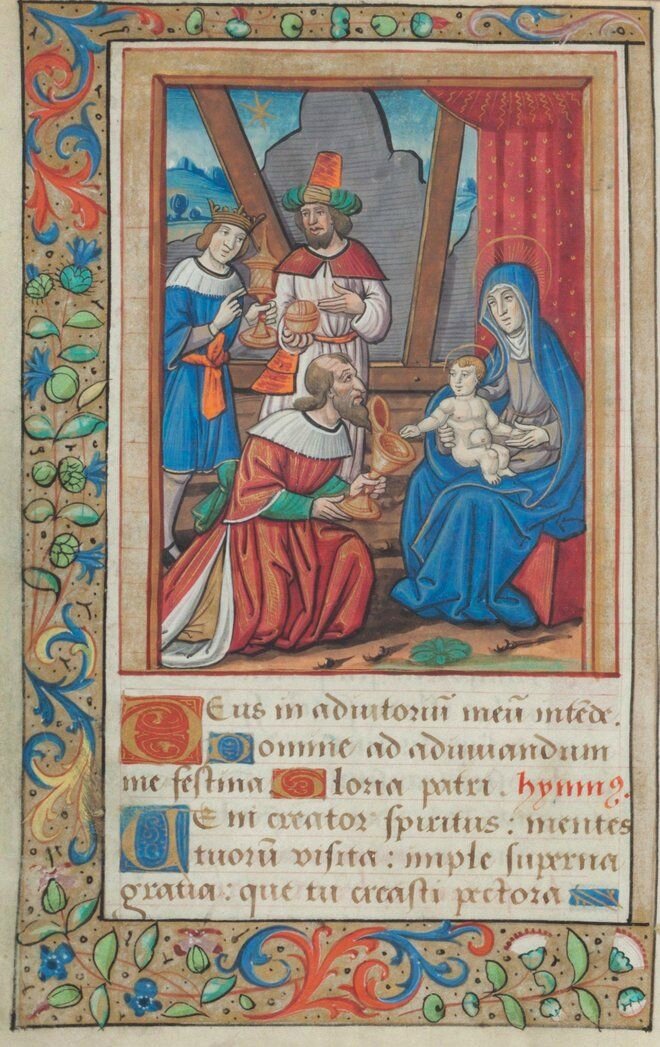 Deus in adiutoriũ meũ intẽde.
Domine ad adiuuandum
me festina Gloria patri. hymnꝰ.
Veni creator spiritus: mentes
tuorũ visita: imple superna
gratia: que tu creasti pectora